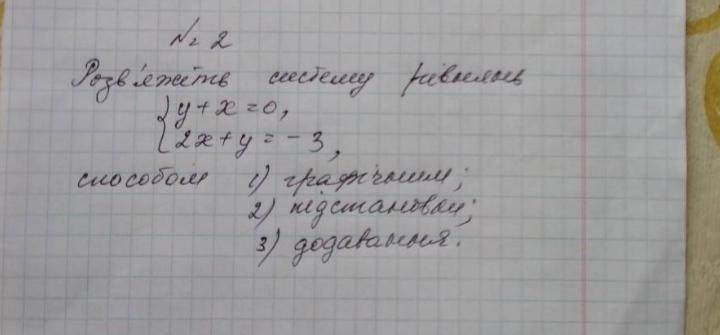 № 2
Розв'яжіть систему рівнянь
{ y + x = 0,
2x + y = - 3,
способом 1) графічним;
2) підстановки;
3) додавання.